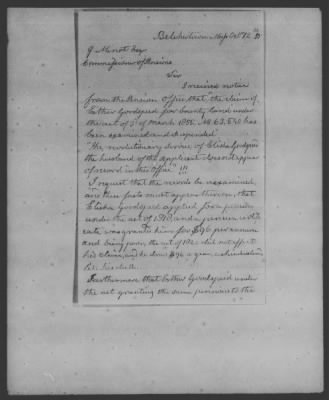 Belchertown Mass Oct 12
G Minot Esq
Commissioner of Pensions
Sir
I received notice
from the Pension Office that "the claim of
Esther Goodgaid for Bounty Land under
the act of 3d of March 1855. No 63,
been examined and suspended
"The revolutionary service of Elisha
the husband of the applicant does not appear
of record in this Office" !!!
I request that the records be reexamined,
are these facts must appear therein, that
Elisha applied for a pension
under the act of 1818, and a pension certifi-
cate was granted him for $96 per annum
and being poor, the act of 1820 did not affect
his claim, and he drew $96 a year, uninterruptedly
till his death.
Furthermore that Esther under
the act granting the same pension to the